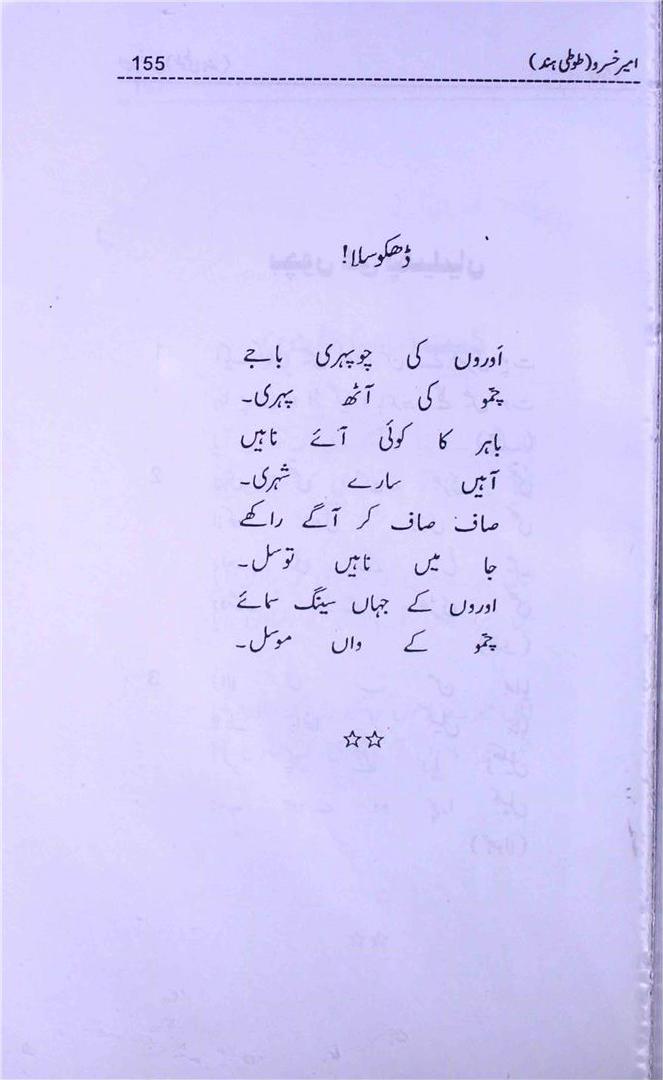 امیر خسرو (طوطی ہند) 155
ڈھکوسلا!
اَوروں کی چوپہری باجے
چمّو کی آٹھ پہری۔
باہر کا کوئی آئے ناہیں
آہیں سارے شہری۔
صاف صاف کر آگے راکھے
جا میں ناہیں توسل۔
اوروں کے جہاں سینگ سمائے
چمّو کے واں موسل۔
☆☆